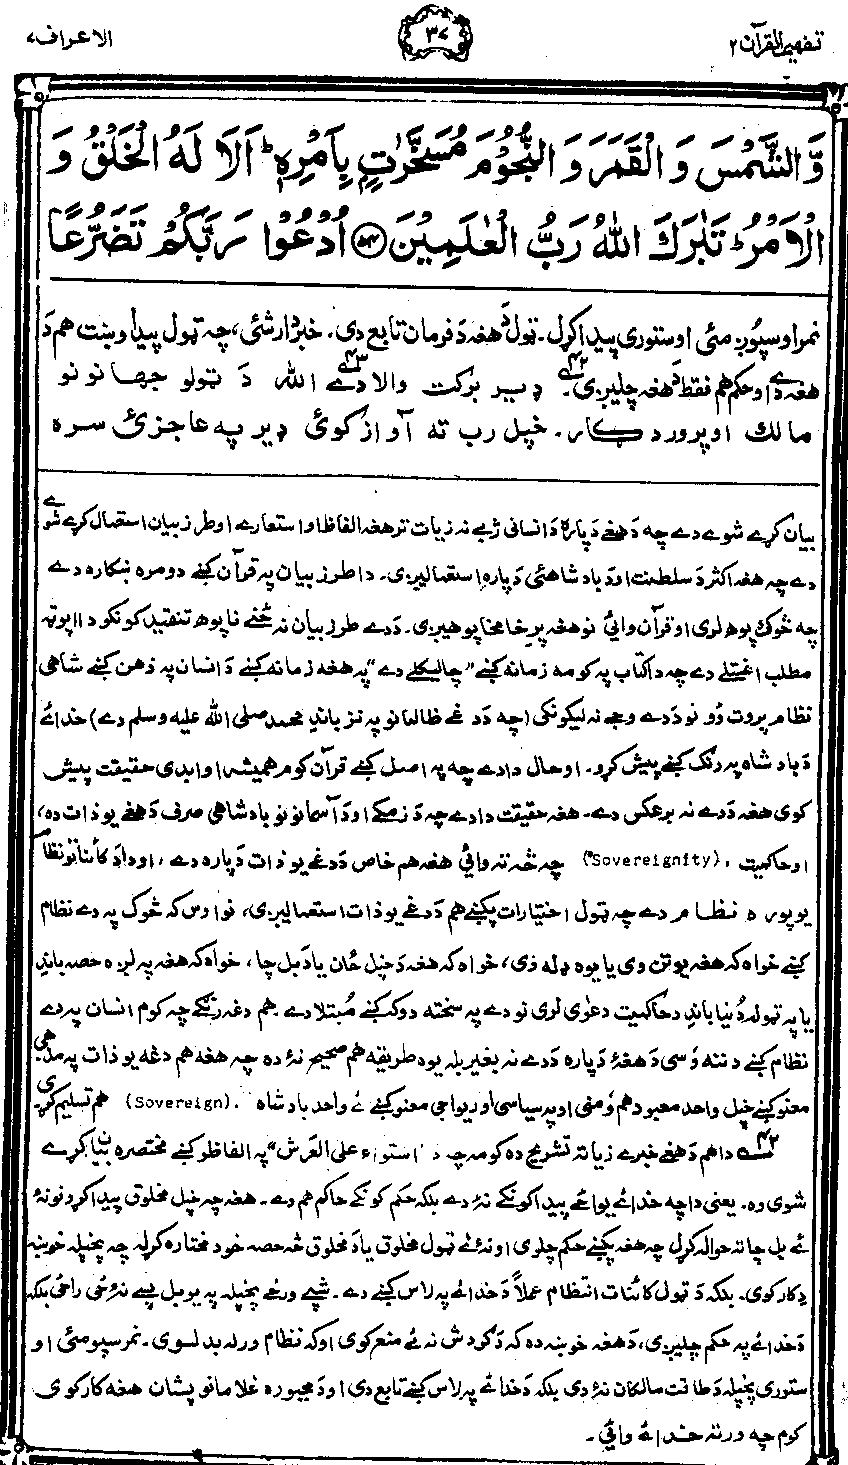 تفهیم القرآن ۲
۳۷
الاعراف ۷
وَّالشَّمْسَ وَالْقَمَرَ وَالنُّجُوْمَ مُسَخَّرٰتٍۢ بِاَمْرِهٖ ؕ اَلَا لَهُ الْخَلْقُ وَ
الْاَمْرُ ؕ تَبٰرَكَ اللّٰهُ رَبُّ الْعٰلَمِیْنَ ۝۵۴ اُدْعُوْا رَبَّكُمْ تَضَرُّعًا
نمر او سپوږمئی او ستوری پیدا کړل۔ ټول دَ هغه دَ فرمان تابع دی۔ خبردار شئی، چه ټول پیداوښت هم دَ
هغه دے او حکم هم فقط دَ هغه چلیږی۔ ۴۲ ډیر برکت والا دے ۴۳ الله دَ ټولو جهانونو
مالك او پروردګار۔ خپل رب ته آواز کوئ ډیر په عاجزئ سره
بیان کړے شوے دے چه دَ هغے دَ پاره دَ انسانی ژبے نه زیات تر هغه الفاظ او استعارے او طرز بیان استعمال کړے شوے
دے چه هغه اکثر دَ سلطنت او دَ بادشاهئی دَ پاره استعمالیږی۔ دا طرز بیان په قرآن کښے دومره ښکاره دے
چه څوك پوهه لری او قرآن وائی نو هغه پرے خامخا پوهیږی۔ دَ دے طرز بیان نه ځنے ناپوهه تنقید کونکو دا اپوټه
مطلب اغستلے دے چه دا کتاب په کومه زمانه کښے "چا لیکلے دے" په هغه زمانه کښے دَ انسان په ذهن کښے شاهی
نظام پروت وُو نو دَ دے وجے نه لیکونکی (چه دَ دغے ظالمانو په نزد باندِ محمد صلی الله علیه وسلم دے) خدائے
دَ بادشاه په رنګ کښے پیش کړو۔ او حال دا دے چه په اصل کښے قرآن کوم همیشه او ابدی حقیقت پیش
کوی هغه دَ دے نه برعکس دے۔ هغه حقیقت دا دے چه دَ زمکے او دَ آسمانونو بادشاهی صرف دَ هغے یو ذات ده،
او حاکمیت (Sovereignity)، چه څه ته وائی هغه هم خاص دَ دغے یو ذات دَ پاره دے، او دا دَ کائناتو نظام
یو پوره نظام دے چه ټول اختیارات پکښے هم دَ دغے یو ذات استعمالیږی، نو اوس که څوك په دے نظام
کښے خواه که هغه یو تن وی یا یوه ډله وی، خواه که هغه دَ خپل ځان یا دَ بل چا، خواه که هغه په لږه حصه باندِ
یا په ټوله دُنیا باندِ دَ حاکمیت دعوٰی لری نو دے په سخته دوکه کښے مُبتلا دے۔ هم دغه رنګے چه کوم انسان په دے
نظام کښے دننه وَسی دَ هغهٔ دَ پاره دَ دے نه بغیر بله یوه طریقه هم صحیح نهٔ ده چه هغه هم دغه یو ذات په مذهبی
معنو کښے خپل واحد معبود هم وَمنی او په سیاسی او رواجی معنو کښے ئے واحد بادشاه (Sovereign). هم تسلیم کړی۔
۴۲ دا هم دَ هغے خبرے زیاته تشریح ده کومه چه دَ "استواء علی العرش" په الفاظو کښے مختصره بیان کړے
شوی وه۔ یعنی دا چه خدائے یواځے پیدا کونکے نهٔ دے بلکه حکم کونکے حاکم هم دے۔ هغه چه خپل مخلوق پیدا کړو نو نهٔ
ئے بل چا ته حواله کړل چه هغه پکښے حکم چلوی او نهٔ ئے ټول مخلوق یا دَ مخلوق څه حصه خود مختاره کړله چه پخپله خوښه
دِ کار کوی۔ بلکه دَ ټول کائنات انتظام عملاً دَ خدائے په لاس کښے دے۔ شپے ورځے پخپله په یو بل پسے نهٔ ځی راځی بلکه
دَ خدائے په حکم چلیږی، دَ هغه خوښه ده که دَ ګردش نه ئے منع کوی او که نظام ورله بدلوی۔ نمر سپوږمئی او
ستوری پخپله دَ طاقت مالکان نهٔ دی بلکه دَ خدائے په لاس کښے تابع دی او دَ مجبوره غلامانو پشان هغه کار کوی
کوم چه ورته خدائے وائی۔